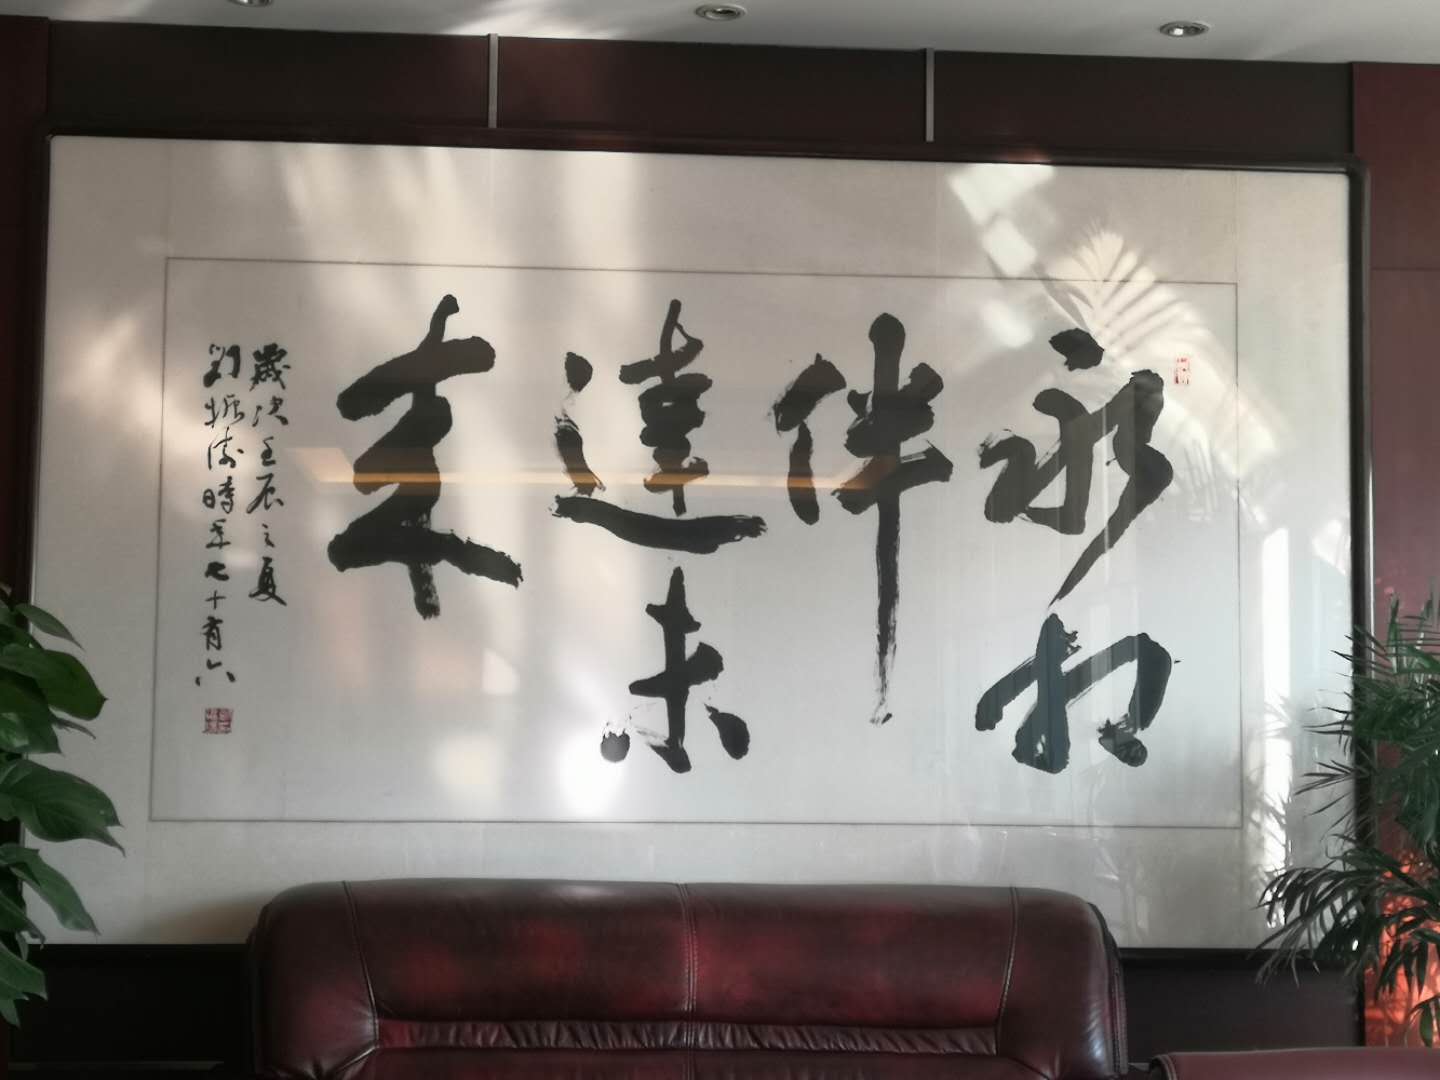 永相
伴
達未
来
歲次壬辰之夏
劉振涛時年七十有六